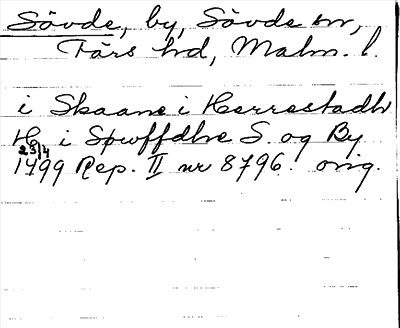 Sövde, by, Sövde sn,
Färs hd, Malm. l.
i Skaane i Herrestadh
H. i Spwffdhe S. og By
23/4
1499 Rep. II nr 8796. orig.